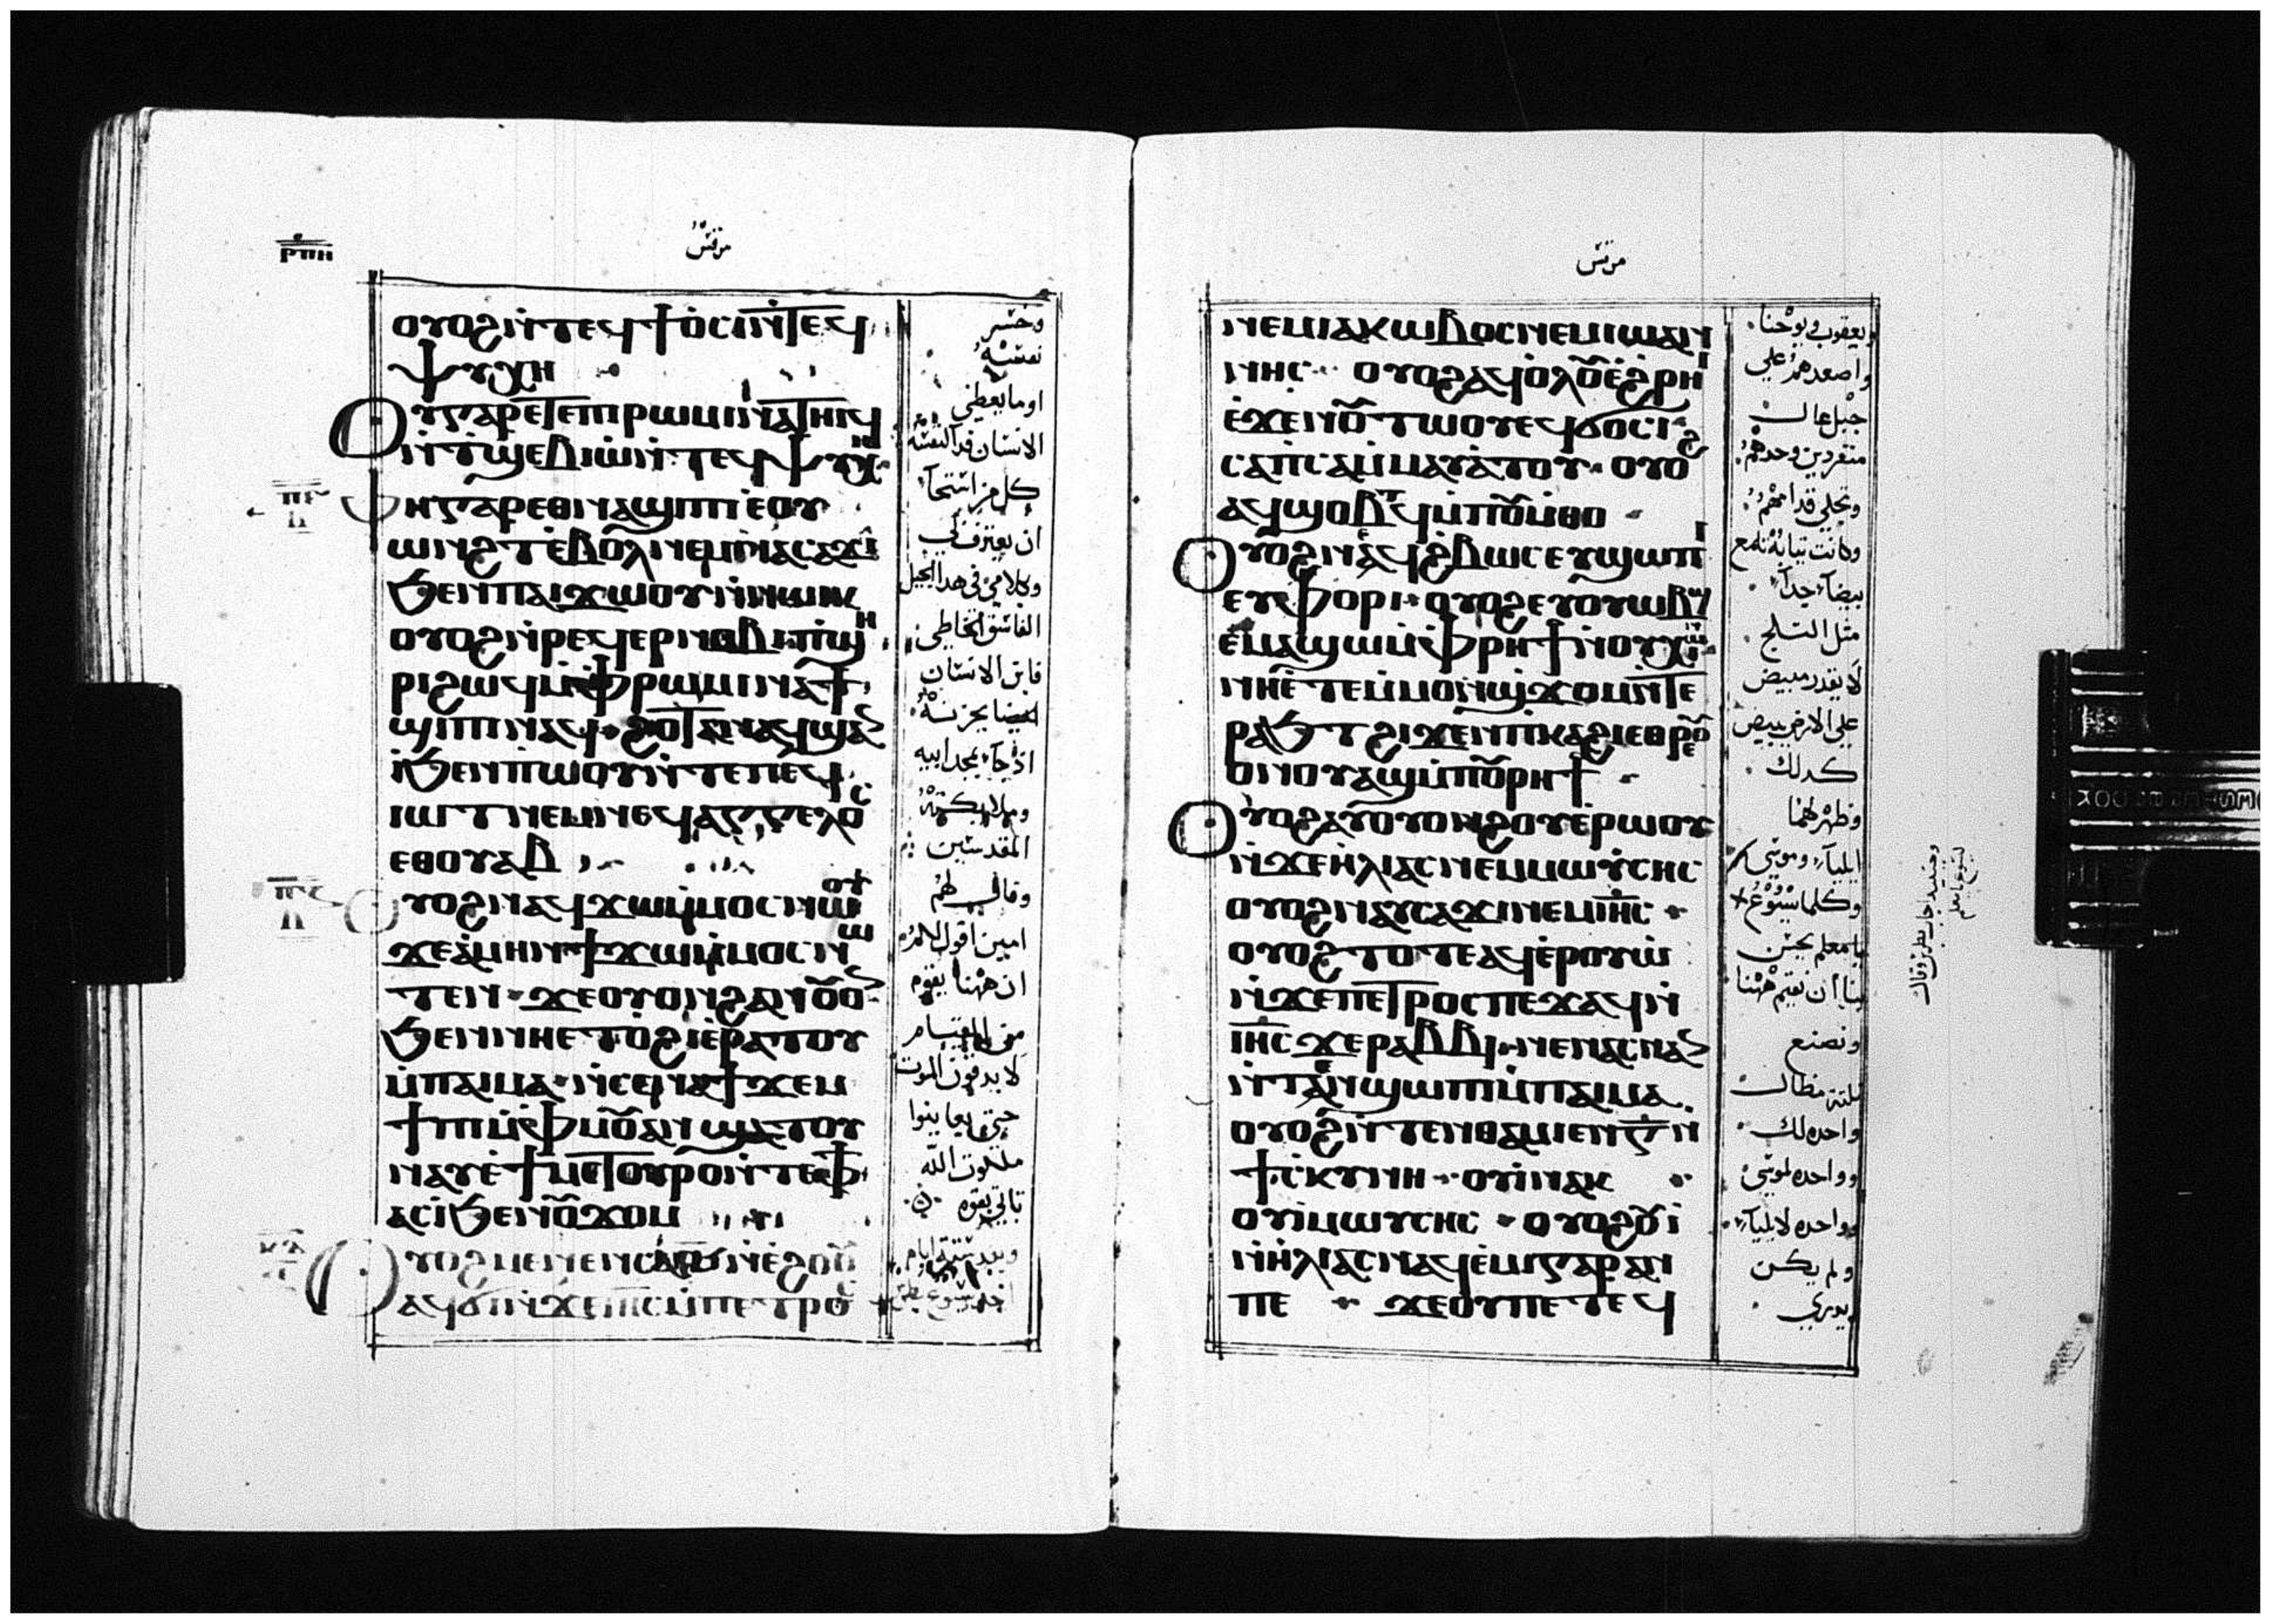 ⲣⲡⲏ
مرقس
ⲟⲩⲟϩⲛ̀ⲧⲉϥϯⲟ̀ⲥⲓⲛ̀ⲧⲉϥ
ⲯⲩⲭⲏ
ⲟⲩⲅⲁⲣⲉⲧⲉⲡⲓⲣⲱⲙⲓⲛⲁⲧⲏⲓϥ
ⲛ̀ⲧϣⲉⲃⲓⲱ̀ⲛ̀ⲧⲉϥⲯⲩⲭⲏ
ⲫⲏⲅⲁⲣⲉⲑⲛⲁϣⲓⲡⲓⲉ̀ⲟⲩ
ⲱⲛϩⲧⲉ̀ⲃⲟⲗⲛⲉⲙⲛⲁⲥⲁϫⲓ
ϧⲉⲛⲡⲁⲓϫⲱⲟⲩⲛ̀ⲛⲱⲓⲕ
ⲟⲩⲟϩⲛ̀ⲣⲉϥⲉⲣⲛⲟⲃⲓ ⲡϣⲏ
ⲣⲓϩⲱϥⲙ̀ⲫⲣⲱⲙⲓⲛⲁϯ
ϣⲓⲡⲓⲛⲁϥ ϩⲟⲧⲁⲛⲁϥϣⲁ
ⲓ̀ϧⲉⲛⲡⲱⲟⲩⲛ̀ⲧⲉⲡⲉϥ
ⲓⲱⲧⲛⲉⲙⲛⲉϥⲁⲅⲅⲉⲗⲟⲥ
ⲉⲑⲟⲩⲁⲃ
ⲟⲩⲟϩⲛⲁϥϫⲱⲙ̀ⲙⲟⲥⲛⲱⲟⲩ
ϫⲉⲁ̀ⲙⲏⲛ ϯϫⲱⲙ̀ⲙⲟⲥⲛⲱ
ⲧⲉⲛ ϫⲉⲟⲩⲟⲛϩⲁⲛⲟⲩⲟ
ϧⲉⲛⲛⲏⲉⲧⲟ̀ϩⲓⲉ̀ⲣⲁⲧⲟⲩ
ⲙ̀ⲡⲁⲓⲙⲁ ⲛ̀ⲥⲉⲛⲁϯϫⲉⲙ
ϯⲡⲓⲙ̀ⲫⲙⲟⲩⲁⲛ ϣⲁⲧⲟⲩ
ⲛⲁⲩⲉ̀ϯⲙⲉⲧⲟⲩⲣⲟⲛ̀ⲧⲉⲫϯ
ⲁⲥⲓ̀ϧⲉⲛⲟⲩϫⲟⲙ
ⲟⲩⲟϩⲙⲉⲛⲉⲛⲥⲁ ⲛ̀ⲉ̀ϩⲟⲟⲩ
ⲁϥϭⲓⲛ̀ϫⲉⲓⲏⲥⲙ̀ⲡⲉⲧⲣⲟⲥ
وخسر
نفسه
اوما يعطي
الانسان فدآ لنفسه
كل من استحآ
ان يعترف بي
وكلامي في هدا الجيل
الفاسق الخاطي
فابن الانسان
ايضا يحزنه
اذ جآ بمجد ابيه
وملايكته
المقدسين
وقال لهم
امين اقول لكم
ان ههنا يقوم
من القيام
لا يدقون الموت
حتى يعاينوا
ملكوت الله
تاتي بقوه
وبعد ستة ايام
اخد يسوع بطرس
مرقس
ⲛⲉⲙⲓⲁⲕⲱⲃⲟⲥⲛⲉⲙⲓⲱⲁⲛ
ⲛⲏⲥ ⲟⲩⲟϩⲁϥⲟ̀ⲗⲟⲩⲉ̀ϩⲣⲏⲓ
ⲉ̀ϫⲉⲛⲟⲩⲧⲱⲟⲩⲉϥϭⲟⲥⲓ
ⲥⲁⲡ̀ⲥⲁⲙ̀ⲙⲁⲩⲁ̀ⲧⲟⲩ ⲟⲩⲟϩ
ⲁϥϣⲟⲃⲧϥⲙ̀ⲡⲟⲩⲙ̀ⲑⲟ
ⲟⲩⲟϩⲛⲁϥϩ̀ⲃⲱⲥⲉⲩϣⲱⲡⲓ
ⲉⲩⲫⲟⲣⲓ ⲟⲩⲟϩⲉⲩⲟⲩⲱⲃϣ
ⲉⲙⲁϣⲱⲙ̀ⲫⲣⲏϯⲛ̀ⲟⲩⲭⲓⲱⲛ
ⲛⲏⲉ̀ⲧⲉⲙ̀ⲙⲟⲛϣϫⲟⲙⲛ̀ⲧⲉ
ⲣⲁϧⲧϩⲓϫⲉⲛⲡⲓⲕⲁϩⲓⲉⲑⲣⲟ
ⲟⲩⲟⲩⲃⲁϣⲙ̀ⲡⲟⲩⲣⲏϯ
ⲟⲩⲟϩⲁⲩⲟⲩⲟⲛϩⲟⲩⲉ̀ⲣⲱⲟⲩ
ⲛ̀ϫⲉⲏ̀ⲗⲓⲁⲥⲛⲉⲙⲙⲱⲩ̀ⲥⲏⲥ
ⲟⲩⲟϩⲛⲁⲩⲥⲁϫⲓⲛⲉⲙⲓⲏⲥ
ⲟⲩⲟϩⲧⲟⲧⲉⲁϥⲉ̀ⲣⲟⲩⲱ̀
ⲛ̀ϫⲉⲡⲉⲧⲣⲟⲥⲡⲉϫⲁϥⲛ̀
ⲓⲏⲥϫⲉⲣⲁⲃⲃⲓ ⲛⲉⲛⲁⲥⲛⲁ
ⲛ̀ⲧⲁⲛϣⲱⲡⲓⲙ̀ⲡⲁⲓⲙⲁ
ⲟⲩⲟϩⲛ̀ⲧⲉⲛⲑⲁⲙⲓⲉⲛⲅ̅ⲛ̀
ϯⲥ̀ⲕⲩⲛⲏ ⲟⲩⲓ̀ⲛⲁⲕ
ⲟⲩⲓ̀ⲙⲱⲩⲥⲏⲥ ⲟⲩⲟϩⲟⲩⲓ̀
ⲛ̀ⲏ̀ⲗⲓⲁⲥⲛⲁϥⲉ̀ⲙⲓⲅⲁⲣⲁⲛ
ⲡⲉ ϫⲉⲟⲩⲡⲉⲧⲉϥ
ويعقوب ويوحنا
واصعدهم علي
جبل عال
منفردين وحدهم
وتجلي قدامهم
وكانت تيابه تلمع
بيضآ جدآ
مثل الثلج
لا يقدر مبيض
علي الارض يبيض
كدلك
وظهر لهما
ايليآ وموسي
وكلما يسوع
يا معلم يحسن
بنا ان نقيم ههنا
ونصنع
تلتة مظال
واحده لك
وواحده لموسي
وواحده لايليآ
ولم يكن
يدري
وحينيد اجاب بطرس وقال
ليسوع يا معلم